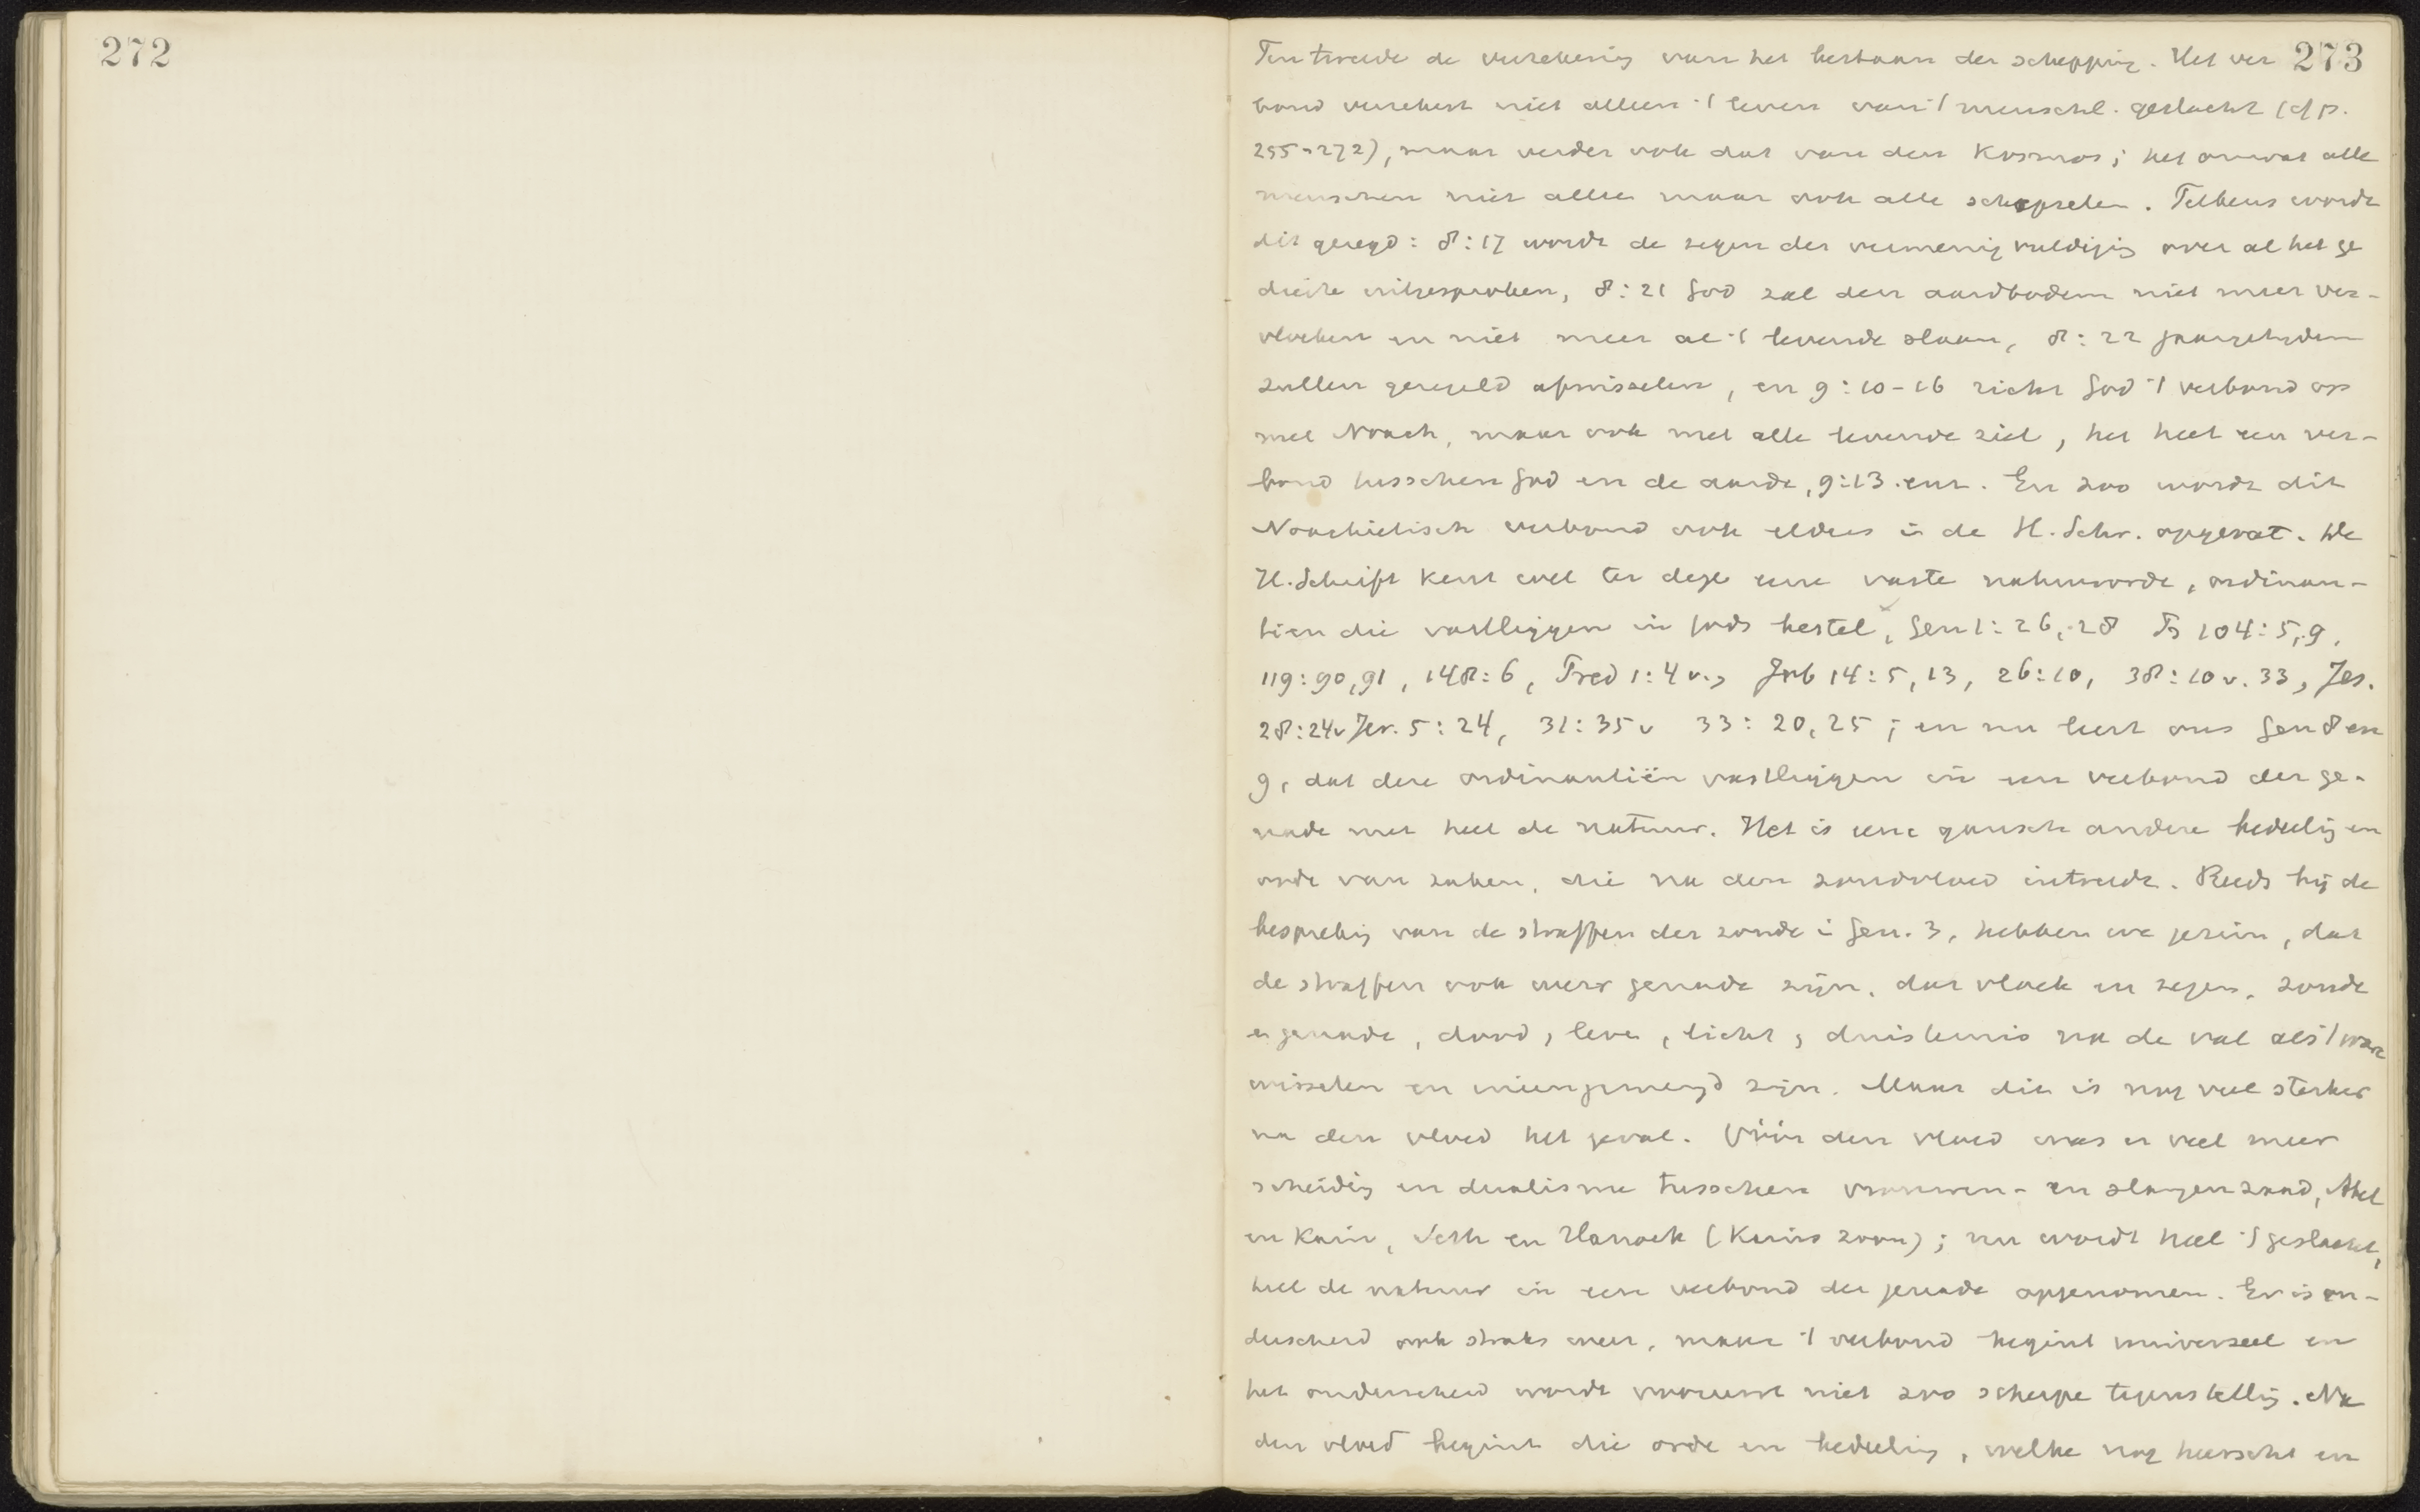 272
273
Ten tweede de verzekering van het bestaan der schepping. Het ver
bond verzekert niet alleen 't leven van 't menschl. geslacht (cf p.
255-272), maar verder ook dat van den Kosmos; het omvat alle
menschen niet alleen maar ook alle schepselen. Telkens wordt
dit gezegd: 8:17 wordt de zegen der vermenigvuldiging over al het ge
dierte uitgesproken, 8:21 God zal den aardbodem niet meer ver-
vloeken en niet meer al 't levende slaan, 8:22 jaargetijden
zullen geregeld afwisselen, en 9:10-16 richt God 't verbond op
met Noach, maar ook met alle levende ziel, het heet een ver-
bond tusschen God en de aarde, 9:13 enz. En zoo wordt dit
Noachietisch verbond ook elders in de H. Schr. opgevat. De
H. Schrift kent wel ter dege eene vaste natuurorde, ordinan-
tien die vastliggen in Gods bestel, Gen 1:26,28 Ps 104:5,9,
119:90,91, 148:6, Pred 1:4v., Job 14:5,13, 26:10, 38:10v. 33, Jes.
28:24v Jer. 5:24, 31:35v 33:20,25; en nu leert ons Gen 8 en
9, dat deze ordinantiën vastliggen in een verbond der ge-
nade met heel de natuur. Het is eene gansch andere bedeeling en
orde van zaken, die na den zondvloed intreedt. Reeds bij de
bespreking van de straffen der zonde in Gen. 3, hebben we gezien, dat
de straffen ook weer genade zijn, dat vloek en zegen, zonde
en genade, dood, leven, licht, duisternis na de val als 't ware
wisselen en ineengemengd zijn. Maar dit is nog veel sterker
na den vloed het geval. Vóór den vloed was er veel meer
scheiding en dualisme tusschen vrouwen- en slangenzaad, Abel
en Kain, Seth en Hanoch (Kains zoon); nu wordt heel 't geslacht,
heel de natuur in een verbond der genade opgenomen. Er is on-
derscheid ook straks weer, maar 't verbond begint universeel en
het onderscheid wordt vooreerst niet zoo scherpe tegenstelling. Na
den vloed begint die orde en bedeeling, welke nog heerscht en